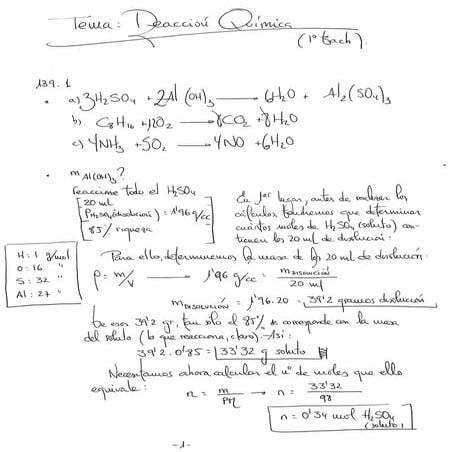 Tema: Reacción Química
(1º Bach).
139.1
• a) 3H₂SO₄ + 2Al(OH)₃ —— 6H₂O + Al₂(SO₄)₃
b) C₈H₁₆ + 12O₂ —— 8CO₂ + 8H₂O
c) 4NH₃ + 5O₂ —— 4NO + 6H₂O
• m Al(OH)₃?
reaccione todo el H₂SO₄
20 ml
ρ H₂SO₄ (disolución) = 1'96 g/cc
85% riqueza
En 1er lugar, antes de realizar los
cálculos tendremos que determinar
cuántos moles de H₂SO₄ (soluto) con-
tienen los 20 ml de disolución:
H: 1 g/mol
O: 16 "
S: 32 "
Al: 27 "
Para ello, determinemos la masa de los 20 ml de disolución.
ρ = m/v → 1'96 g/cc = m DISOLUCIÓN / 20 ml
m DISOLUCIÓN = 1'96 · 20 = 39'2 gramos disolución
De esos 39'2 gr, tan sólo el 85% se corresponde con la masa
del soluto (lo que reacciona, claro). Así:
39'2 · 0'85 = 33'32 g soluto
Necesitamos ahora calcular el nº de moles que ello
equivale: n = m / PM → n = 33'32 / 98
n = 0'34 mol H₂SO₄
(soluto)
-1-